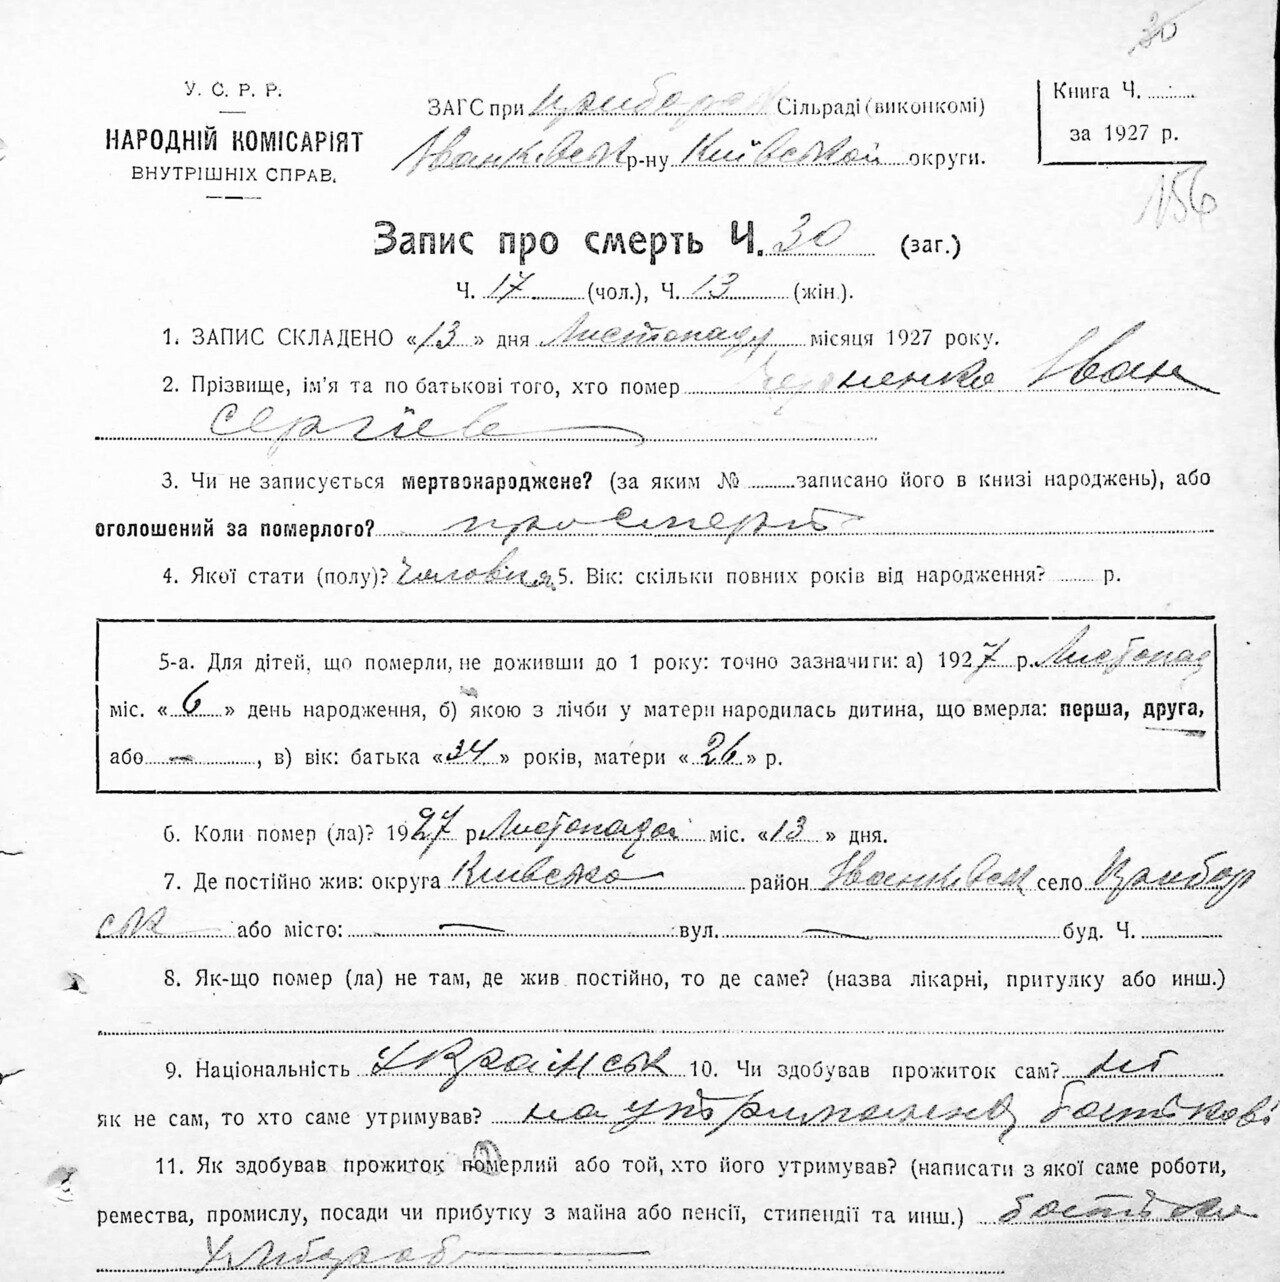 30
У. С. Р. Р.
НАРОДНІЙ КОМІСАРІЯТ
ВНУТРІШНІХ СПРАВ.
ЗАГС при Приборск Сільраді (виконкомі)
Іванківськ р-ну Київської округи.
Книга Ч.
за 1927 р.
156
Запис про смерть Ч. 30 (заг.)
Ч. 17 (чол.), Ч. 13 (жін.).
1. ЗАПИС СКЛАДЕНО «13» дня Листопаду місяця 1927 року.
2. Прізвище, ім'я та по батькові того, хто помер Іван
Сергіїв
3. Чи не записується мертвонароджене? (за яким № записано його в книзі народжень), або
оголошений за померлого? про смерть
4. Якої стати (полу)? 5. Вік: скільки повних років від народження? р.
5-а. Для дітей, що померли, не доживши до 1 року: точно зазначиги: а) 1927 р. Листопад
міс. «6» день народження, б) якою з лічби у матери народилась дитина, що вмерла: перша, друга,
або —, в) вік: батька «34» років, матери «26» р.
6. Коли помер (ла)? 1927 р. Листопада міс. «13» дня.
7. Де постійно жив: округа Київська район Іванківськ село Прибор
ськ або місто: — вул. — буд. Ч.
8. Як-що помер (ла) не там, де жив постійно, то де саме? (назва лікарні, притулку або инш.)
9. Національність Українськ 10. Чи здобував прожиток сам? ні
як не сам, то хто саме утримував? на утриманню батькові
11. Як здобував прожиток померлий або той, хто його утримував? (написати з якої саме роботи,
ремества, промислу, посади чи прибутку з майна або пенсії, стипендії та инш.)
Хлібороб